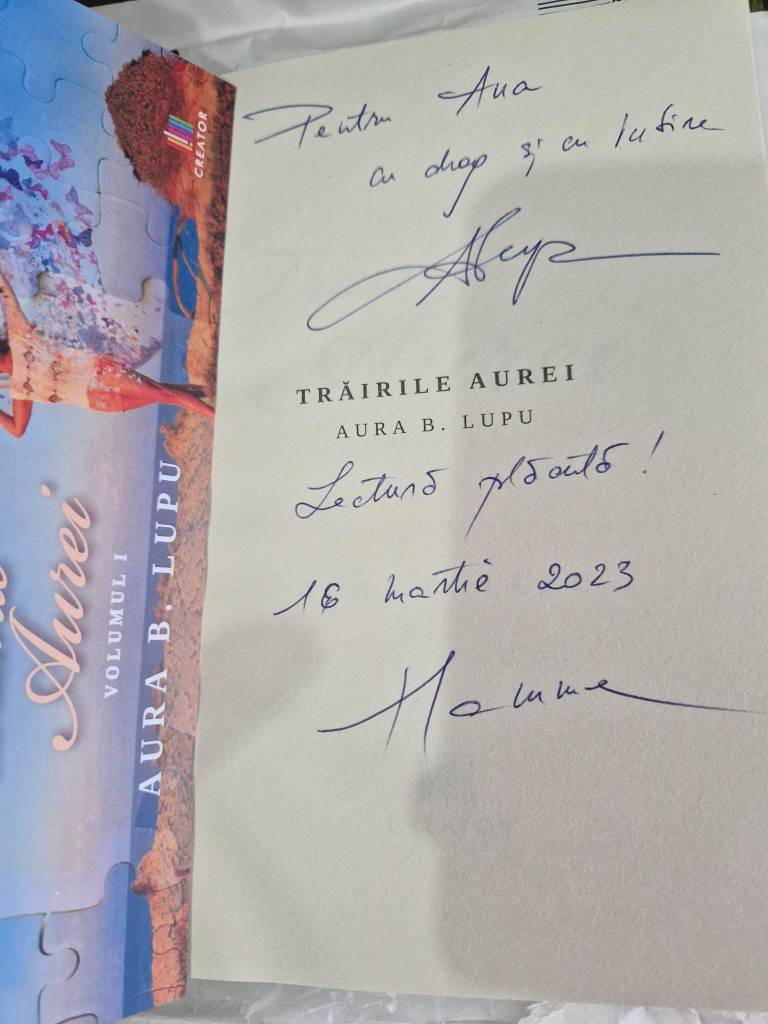 Pentru Ana
cu drag și cu Iubire
TRĂIRILE AUREI
AURA B. LUPU
Lectură plăcută!
16 martie 2023
CREATOR
Aurei
VOLUMUL I
AURA B. LUPU